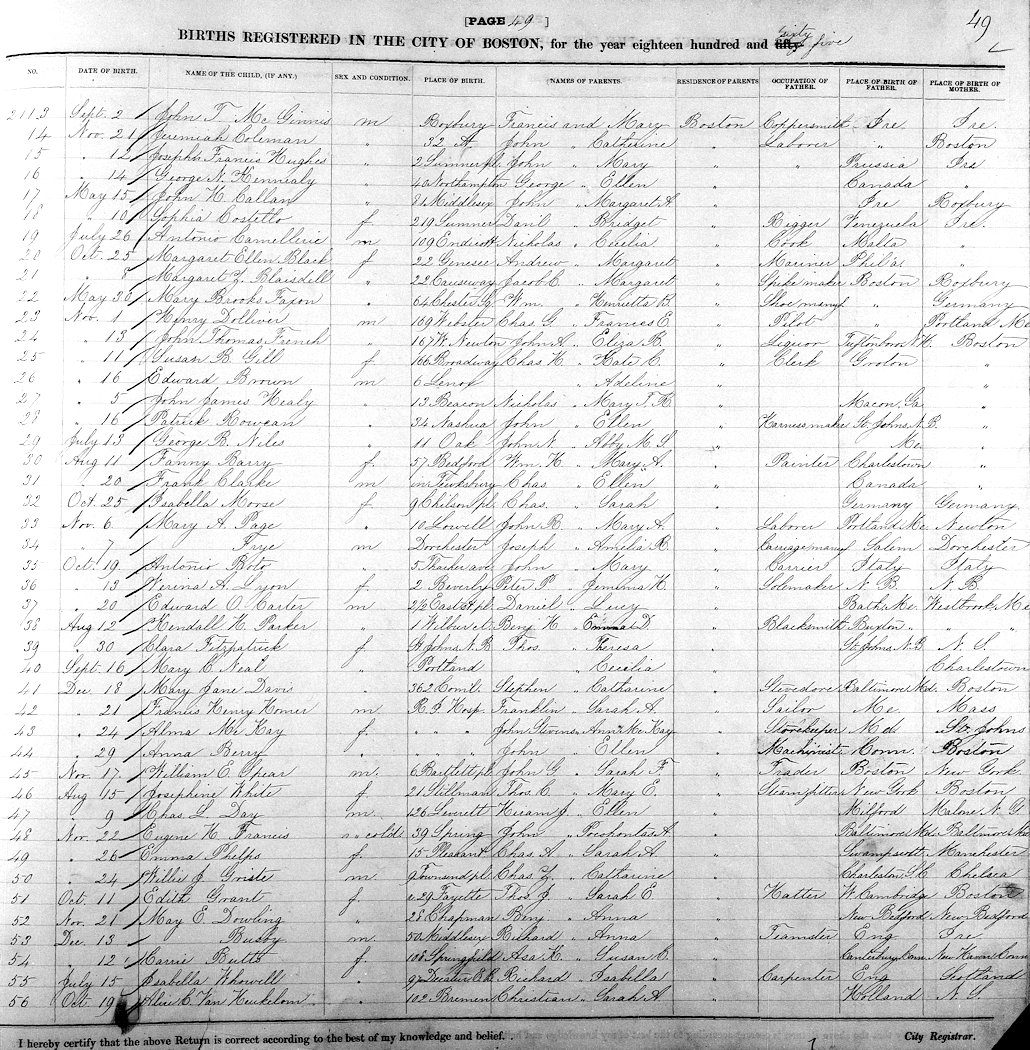 [PAGE 49 ]
49
BIRTHS REGISTERED IN THE CITY OF BOSTON, for the year eighteen hundred and fifty sixty five
NO. DATE OF BIRTH. NAME OF THE CHILD, (IF ANY.) SEX AND CONDITION. PLACE OF BIRTH. (NAMES OF PARENTS. RESIDENCE OF PARENTS OCCUPATION OF FATHER. PLACE OF BIRTH OF FATHER. PLACE OF BIRTH OF MOTHER.
2113 Sept. 2 John T. Mc Ginnis m Roxbury Francis and Mary Boston Coppersmith Ire Ire.
14 Nov. 21 Jeremiah Coleman " 32 A John " Catherine " Laborer " Boston
15 " 12 Joseph Francis Hughes " 2 Sumner pl. John " Mary " " Prussia Ire
16 " 14 George N. Kennealy " 40 Northampton George " Ellen " Canada "
17 May 15 John H. Callan " 81 Middlesex John " Margaret A. " Ire Roxbury
18 " 10 Sophia Costello f 219 Sumner Danl " Bridget " Rigger Venezuela Ire.
19 July 26 Antonio Camellerie m 109 Endicott Nicholas " Cecelia " Cook Malta "
20 Oct. 25 Margaret Ellen Black f 22 Genesee Andrew " Margaret " Mariner Phil'a "
21 " 8 Margaret Z. Blaisdell " 22 Causeway Jacob C. " Margaret " Spike maker Boston Roxbury
22 May 36 Mary Brooks Faxon " 64 Chester Sq. Wm. " Henrietta B. " Shoe manuf " Germany
23 Nov. 1 Henry Dolliver m 169 Webster Chas. G. " Frances E. " Pilot " Portland Me
24 " 13 John Thomas French " 167 W. Newton John A. " Eliza B. " Liquor Tuftonboro N.H. Boston
25 " 11 Susan B. Gill f 166 Broadway Chas. H. " Kate C. " Clerk Groton "
26 " 16 Edward Brown m 6 Lenox " Adeline " "
27 " 5 John James Healy " 13 Beacon Nicholas " Mary T. R. " Macon Ga. "
28 " 16 Patrick Rowean " 34 Nashua John " Ellen " Harness maker St. Johns N.B. "
29 July 13 George B. Niles " 11 Oak John N. " Abby M. S. " Me. "
30 Aug 11 Fanny Barry f. 57 Bedford Wm. H. " Mary A. " Painter Charlestown "
31 " 20 Frank Clarke m in Tewksbury Chas " Ellen " Canada "
32 Oct. 25 Isabella Morse f 9 Chilson pl. Chas. " Sarah " Germany Germany
33 Nov. 6 Mary A. Page " 10 Lowell John R. " Mary A. " Laborer Portland Me. Newton
34 " 7 Frye m Dorchester Joseph " Amelia R. " Carriage manuf Salem Dorchester
35 Oct. 19 Antonio Boto " 5 Thacher ave John " Mary " Carrier Italy Italy
36 " 13 Verina A. Lyon f. 2 Beverly Peter P. " Jemima K. " Solemaker N.B. N.B.
37 " 20 Edward O. Carter m 2½ East st pl. Daniel " Lucy " Bath Me. Westbrook Me.
38 Aug 12 Kendall H. Parker " 1 Wilbur ct. Benj. H " Emma D. " Blacksmith Buxton " " "
39 " 30 Clara Fitzpatrick f St Johns N.B Thos. " Theresa " St. Johns N.B N.S.
40 Sept. 16 Mary C. Neal " Portland " Cecelia " Charlestown
41 Dec. 18 Mary Jane Davis " 362 Coml. Stephen " Catharine " Stevedore Baltimore Md. Boston
42 " 21 Francis Henry Homer m. R.I. Hosp. Franklin " Sarah A. " Tailor Me. Mass
43 " 24 Alma Mc Kay f " " John Stevens, Ann Mc Kay " Storekeeper Md. St. Johns
44 " 29 Anna Berry " " " John " Ellen " Machinist Conn. Boston
45 Nov. 17 William E. Spear m. 6 Bartlett pl. John G. " Sarah F. " Trader Boston New York
46 Aug 15 Josephine White f 21 Stillman Thos. C. " Mary E. " Steamfitter New York Boston
47 " 9 Chas. L. Day m. 126 Leverett Hiram J. " Ellen " Milford Malone N.Y.
48 Nov. 22 Eugene H. Francis " cold. 39 Spring John " Pocahontas A. " Baltimore Md. Baltimore Md
49 " 26 Emma Phelps f. 15 Pleasant Chas. A. " Sarah A. " Swampscott Manchester
50 " 24 Willie J. m. 9 Townsend pl. Chas. Z. " Catharine " Charleston S.C Chelsea
51 Oct. 11 Edith Grant f 29 Fayette Thos. J. " Sarah E. " Hatter W. Cambridge Boston
52 Nov. 21 May E. Dowling " 28 Chapman Benj. " Anna " New Bedford New Bedford
53 Dec. 13 Busby m. 50 Middlesex Richard " Anna " Teamster Eng Ire
54 " 12 Carrie Butts f 108 Springfield Asa K. " Susan C. " Canterbury Conn. New Haven Conn
55 July 15 Isabella Whowell " 97 Decatur E.B. Richard " Isabella " Carpenter Eng Scotland
56 Oct. 19 Alice C. Van Heukelom " 102 Bremen Christian " Sarah A " Holland N.S.
I hereby certify that the above Return is correct according to the best of my knowledge and belief. City Registrar.